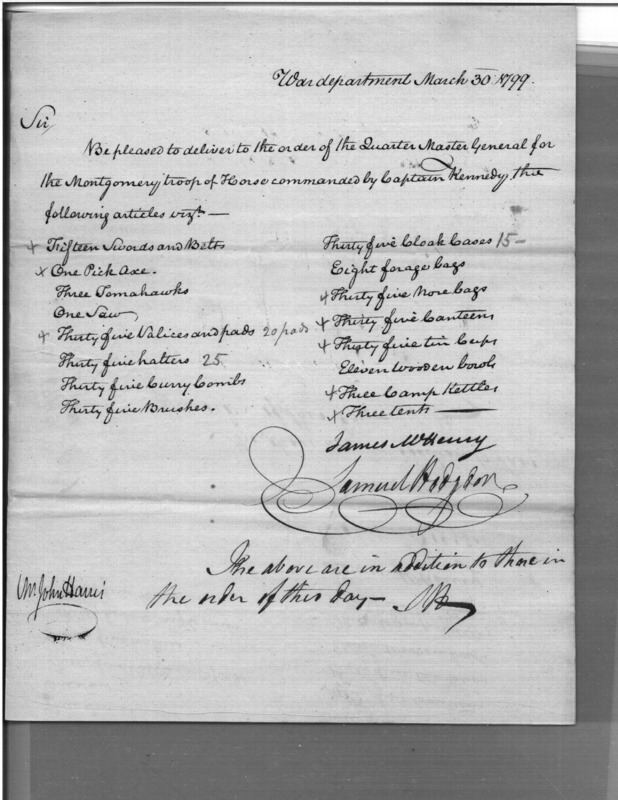 War department March 30th 1799.
Sir,
Be pleased to deliver to the order of the Quarter Master General for
the Montgomery troop of Horse commanded by Captain Kennedy, the
following articles vizt—
+ Fifteen Swords and Belts
x One Pick Axe.
Three Tomahawks
One Saw
+ Thirty five Valices and pads 20 pads
Thirty five halters 25
Thirty five Curry Combs
Thirty five Brushes.
Thirty five Cloak Cases 15—
Eight forage bags
+ Thirty five Nose bags
+ Thirty five Canteens
+ Thirty five tin Cups
Eleven wooden bowls
+ Three Camp Kettles
+ Three tents —
James McHenry
Samuel Hodgdon
The above are in addition to those in
the order of this day— SH
Mr. John Harris